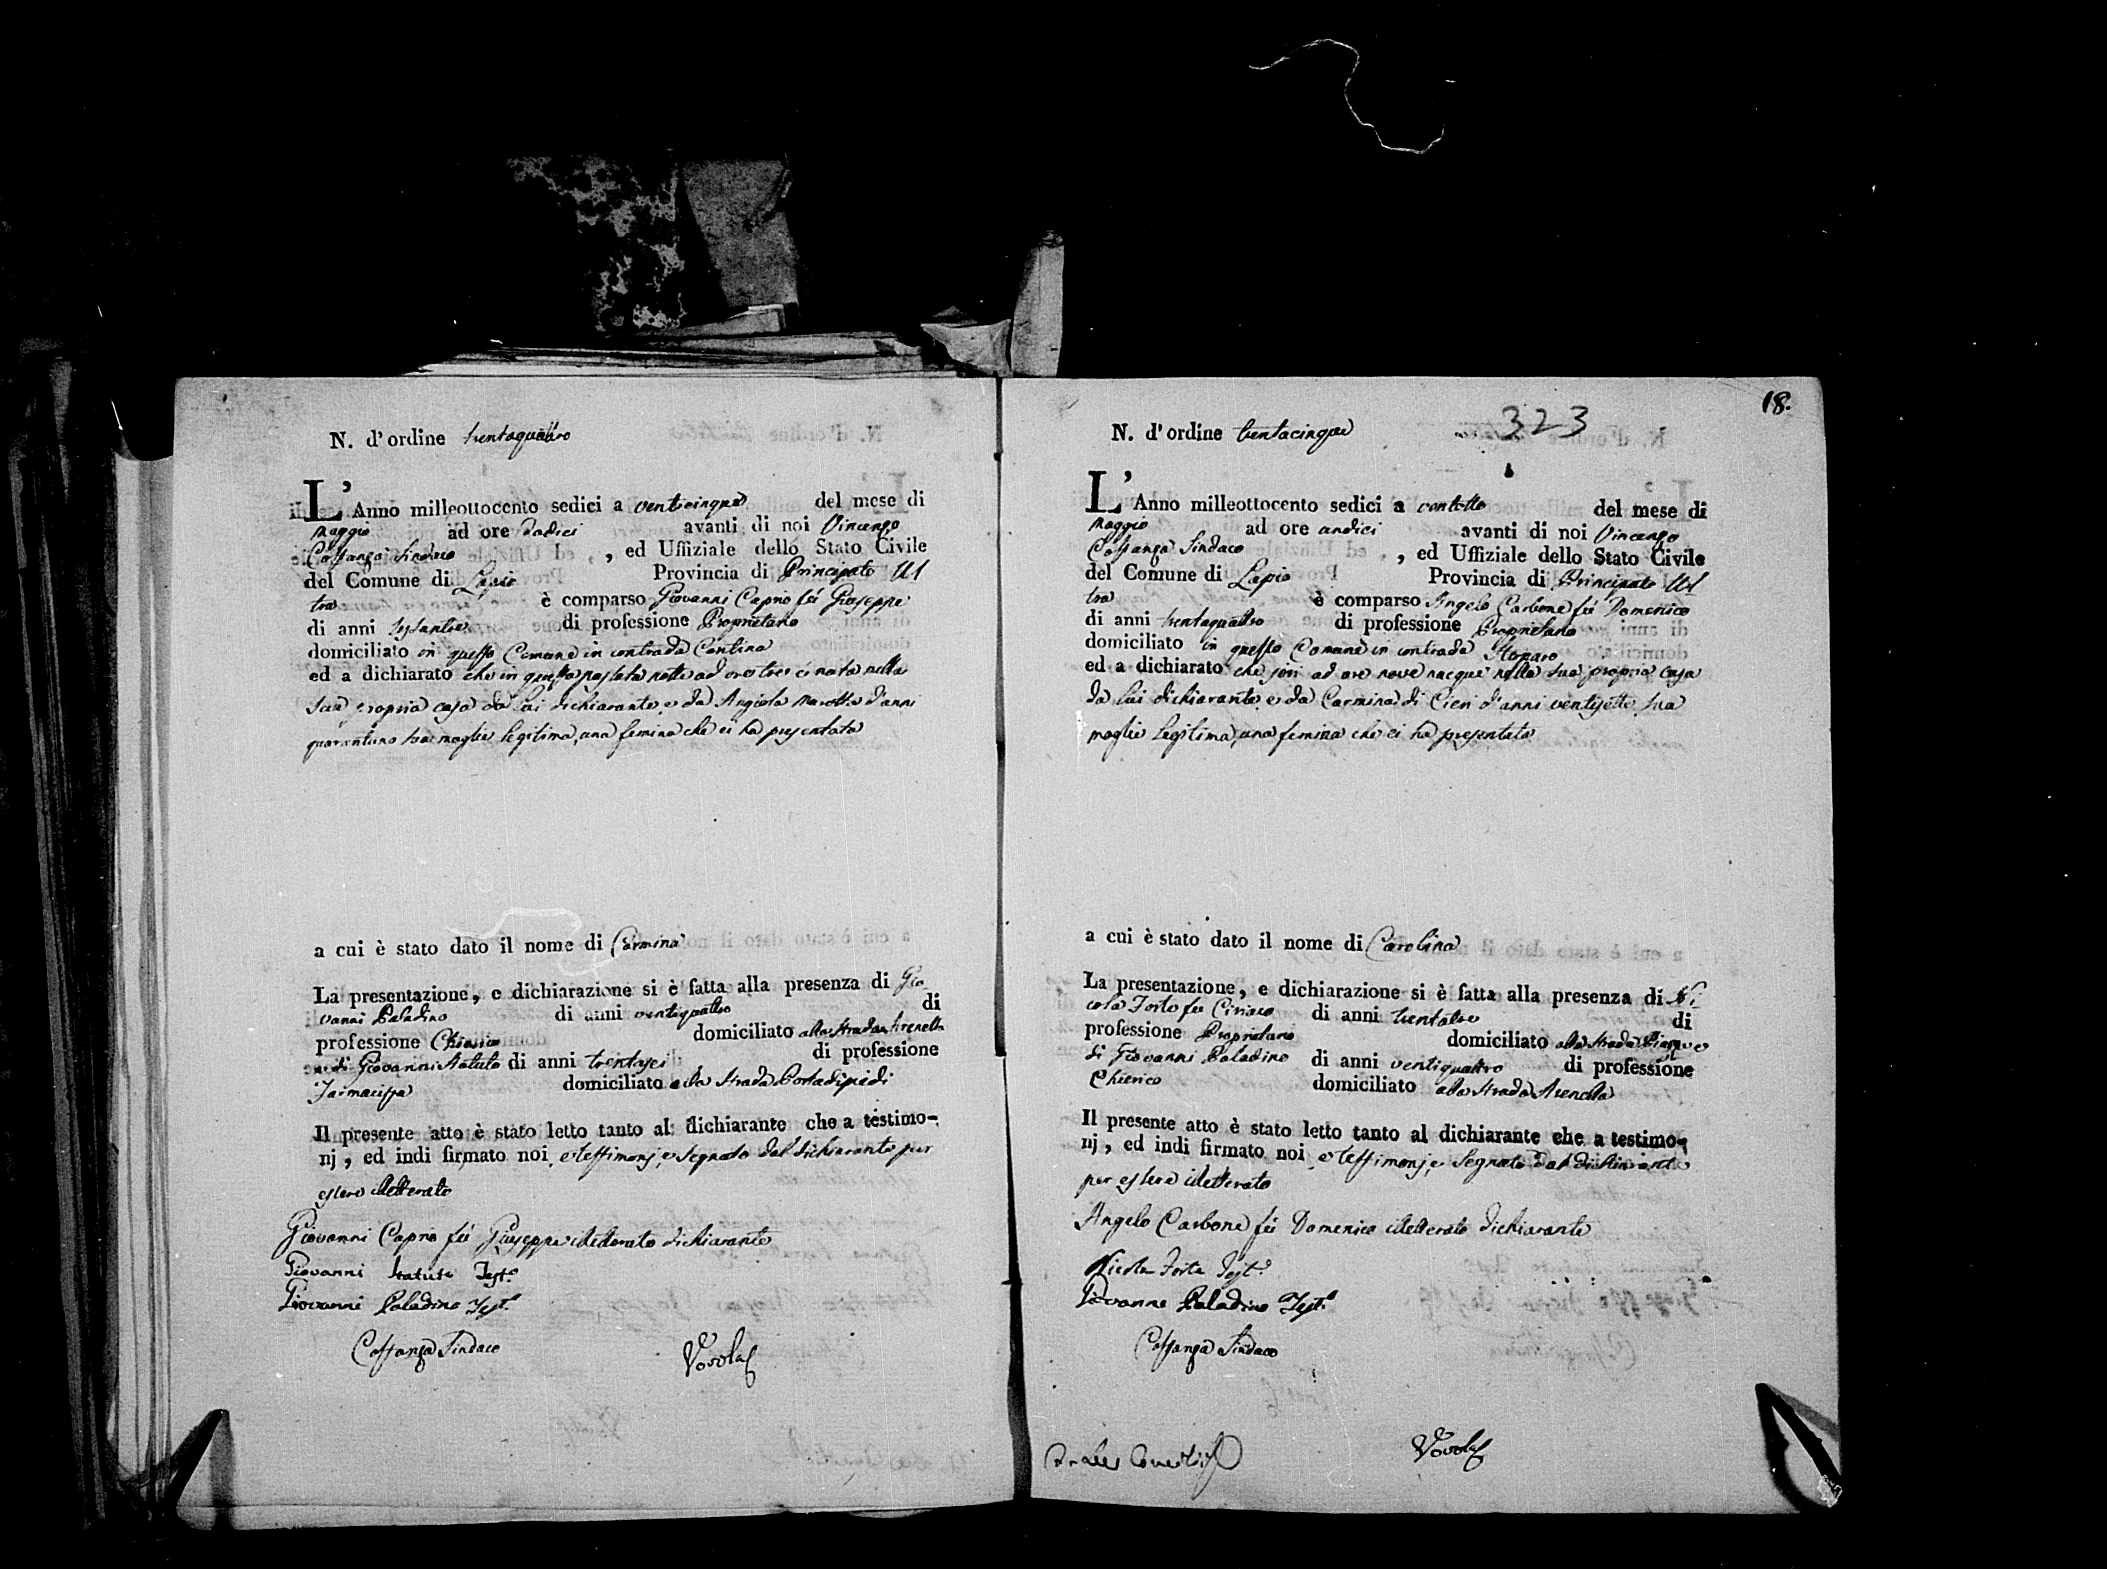 N. d'ordine trentaquattro
L'Anno milleottocento sedici a venticinque del mese di
Maggio ad ore dodici avanti di noi Vincenzo
Costanza Sindaco , ed Uffiziale dello Stato Civile
del Comune di Lapio Provincia di Principato Ul
tra è comparso Giovanni Caprio fù Giuseppe
di anni di professione Proprietario
domiciliato in questo Comune in contrada Cantina
ed a dichiarato che in questa passata notte ad ore tre è nata nella
sua propria casa da lui dichiarante, e da Angiola Marotta d'anni
quarantuno sua moglie legitima, una femina che ci ha presentata
a cui è stato dato il nome di Carmina
La presentazione, e dichiarazione si è fatta alla presenza di Gio
vanni Paladino di anni ventiquattro di
professione Chierico domiciliato alla strada Arenella
e di Giovanni Statuto di anni trentasei di professione
Farmacista domiciliato alla strada Portadipiedi
Il presente atto è stato letto tanto al dichiarante che a testimo-
nj, ed indi firmato noi e testimonj, e segnato dal dichiarante per
essere illetterato
Giovanni Caprio fù Giuseppe illetterato dichiarante
Giovanni Statuto Test.º
Giovanni Paladino Test.º
Costanza Sindaco
18.
323
N. d'ordine trentacinque
L'Anno milleottocento sedici a ventotto del mese di
Maggio ad ore undici avanti di noi Vincenzo
Costanza Sindaco , ed Uffiziale dello Stato Civile
del Comune di Lapio Provincia di Principato Ul
tra è comparso Angelo Carbone fù Domenico
di anni trentaquattro di professione Proprietario
domiciliato in questo Comune in contrada
ed a dichiarato che jeri ad ore nove nacque nella sua propria casa
da lui dichiarante, e da Carmina di Cieri d'anni ventisette sua
moglie legitima, una femina che ci ha presentata
a cui è stato dato il nome di Carolina
La presentazione, e dichiarazione si è fatta alla presenza di Ni
cola Forte fù Ciriaco di anni trentatre di
professione Proprietario domiciliato alla strada
di Giovanni Paladino di anni ventiquattro di professione
Chierico domiciliato alla strada Arenella
Il presente atto è stato letto tanto al dichiarante che a testimo-
nj, ed indi firmato noi e testimonj, e segnato dal dichiarante
per essere illetterato
Angelo Carbone fù Domenico illetterato dichiarante
Nicola Forte Test.º
Giovanni Paladino Test.º
Costanza Sindaco